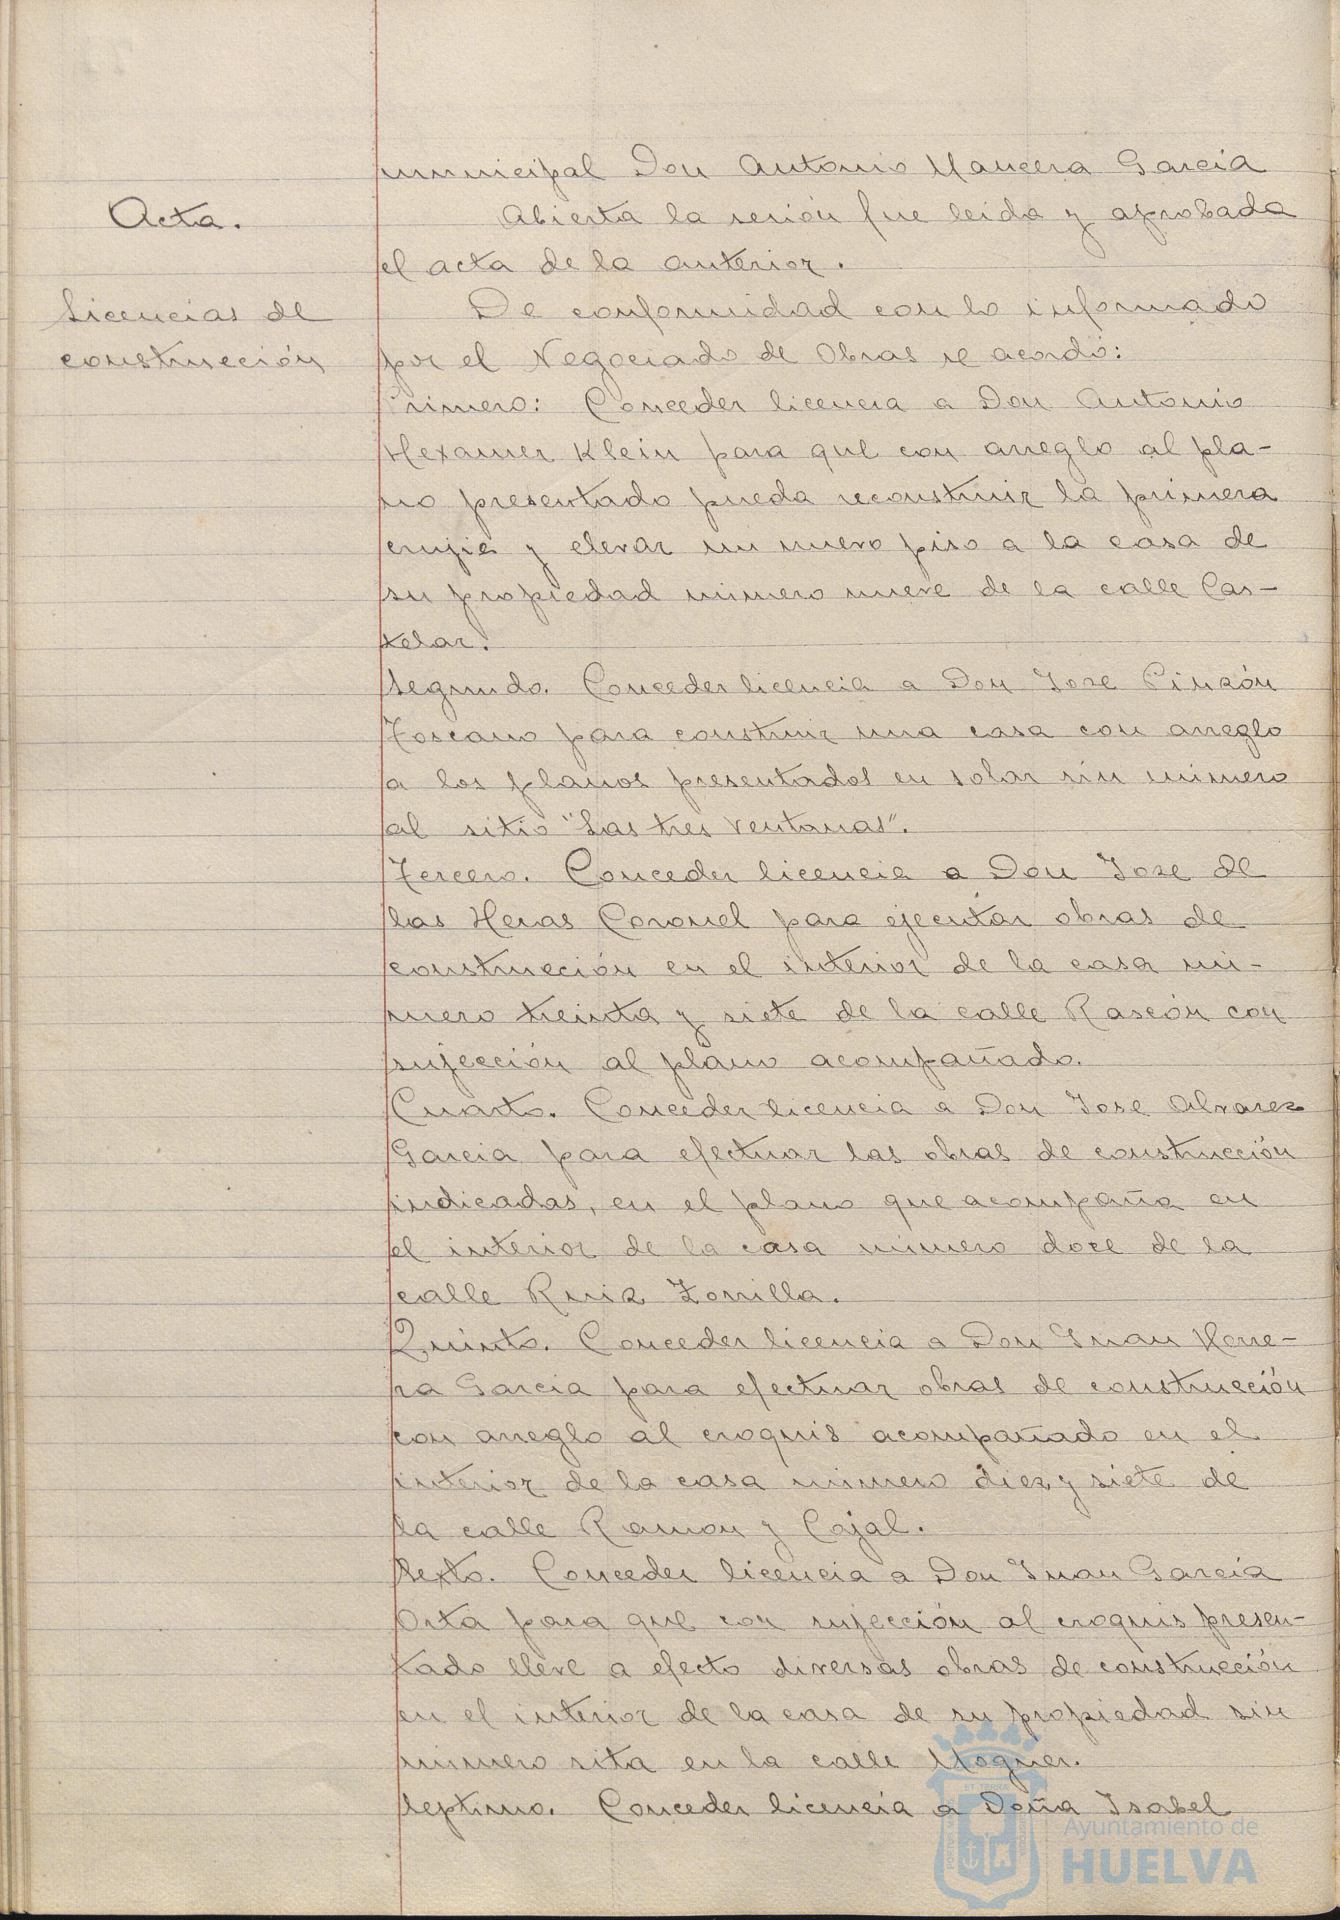 municipal Don Antonio Mancera García
Acta.
Abierta la sesión fue leida y aprobada
el acta de la anterior.
Licencias de
construcción
De conformidad con lo informado
por el Negociado de Obras se acordó:
Primero: Conceder licencia a Don Antonio
Hexamer Klein para que con arreglo al pla-
no presentado pueda reconstruir la primera
crujia y elevar un nuevo piso a la casa de
su propiedad número nueve de la calle Cas-
telar.
Segundo. Conceder licencia a Don Jose Pinzón
Toscano para construir una casa con arreglo
a los planos presentados en solar sin número
al sitio "Las tres Ventanas".
Tercero. Conceder licencia a Don Jose de
las Heras Coronel para ejecutar obras de
construcción en el interior de la casa nú-
mero treinta y siete de la calle Rascón con
sujección al plano acompañado.
Cuarto. Conceder licencia a Don Jose Alvarez
Garcia para efectuar las obras de construcción
indicadas, en el plano que acompaña en
el interior de la casa número doce de la
calle Ruiz Zorrilla.
Quinto. Conceder licencia a Don Juan Herre-
ra Garcia para efectuar obras de construcción
con arreglo al croquis acompañado en el
interior de la casa número diez y siete de
la calle Ramon y Cajal.
Sexto. Conceder licencia a Don Juan García
Orta para que con sujección al croquis presen-
tado lleve a efecto diversas obras de construcción
en el interior de la casa de su propiedad sin
número sita en la calle Moguer.
Septimo. Conceder licencia a Doña Isabel
Ayuntamiento de
HUELVA